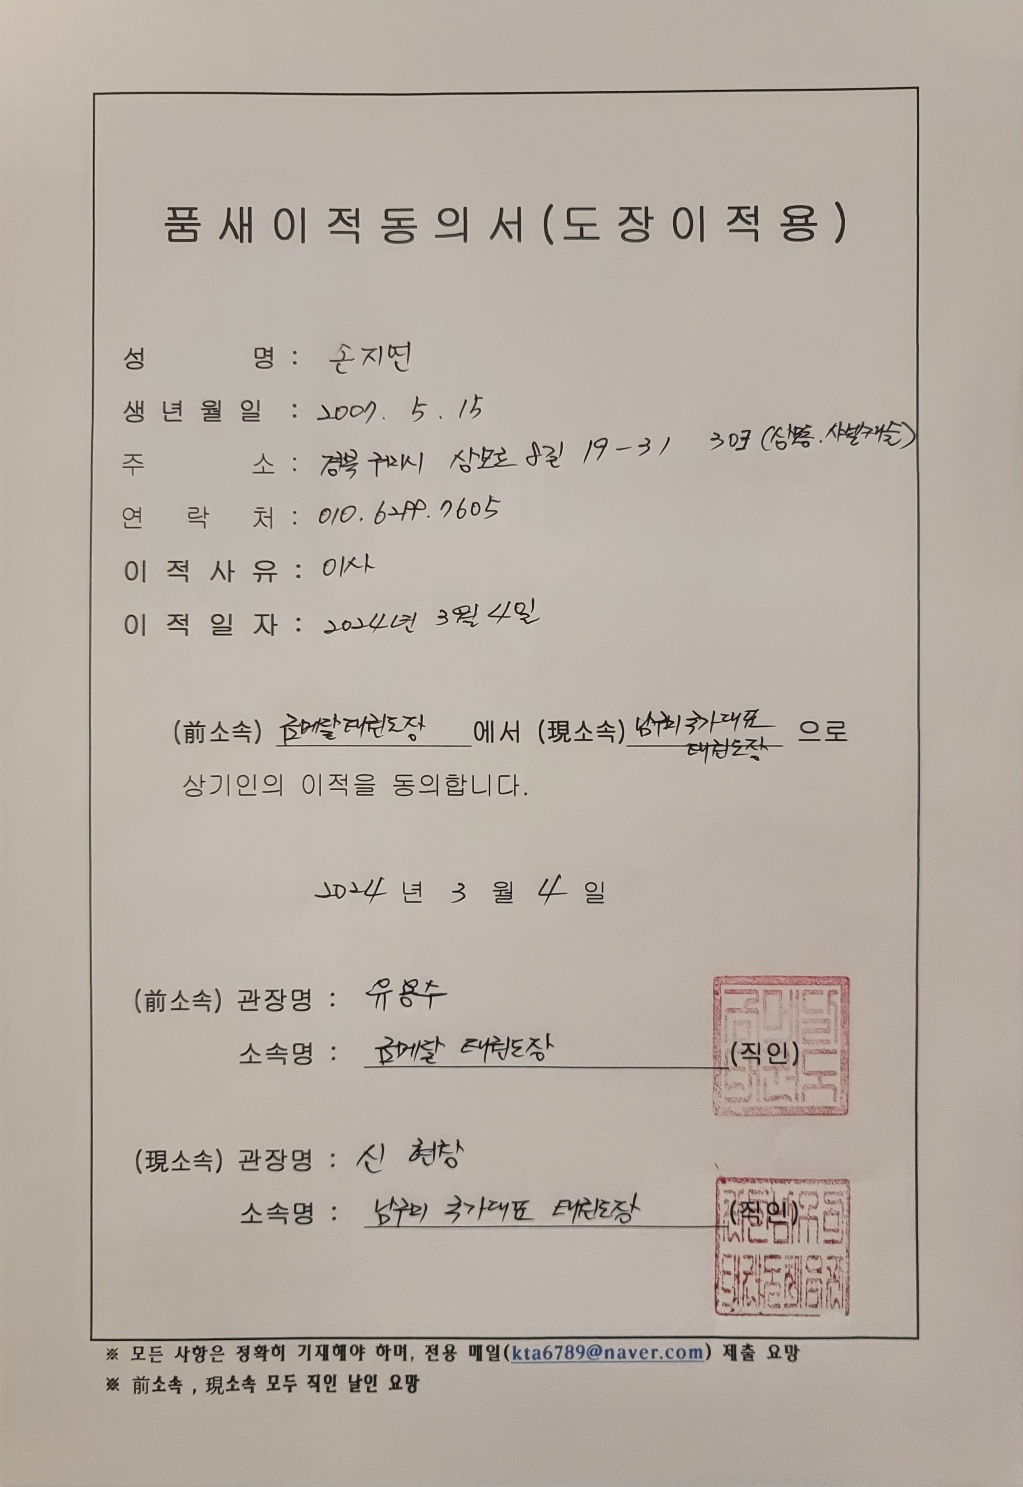 품새이적동의서(도장이적용)
성 명 : 손지연
생년월일 : 2007. 5. 15
주 소 : 경북 구미시 상모로 8길 19-31 303호 (상모동. 샤넬캐슬)
연 락 처 : 010. 6299. 7605
이적사유 : 이사
이적일자 : 2024년 3월 4일
(前소속) 금메달태권도장 에서 (現소속) 남구미국가대표 태권도장 으로
상기인의 이적을 동의합니다.
2024 년 3 월 4 일
(前소속) 관장명 : 유용수
소속명 : 금메달 태권도장 (직인)
(現소속) 관장명 : 신현창
소속명 : 남구미 국가대표 태권도장 (직인)
※ 모든 사항은 정확히 기재해야 하며, 전용 메일(kta6789@naver.com) 제출 요망
※ 前소속 , 現소속 모두 직인 날인 요망